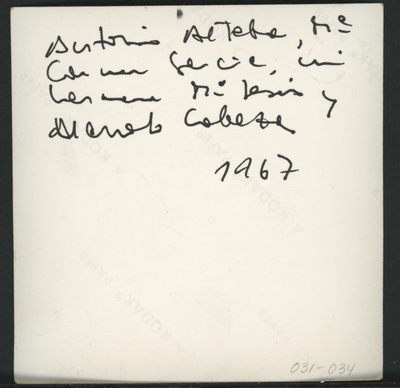 Antonio Alteba, Mª
Carmen Garcia, mi
hermana Mª Jesús y
Manolo Cabezas
1967
A KODAK PAPER
031-034